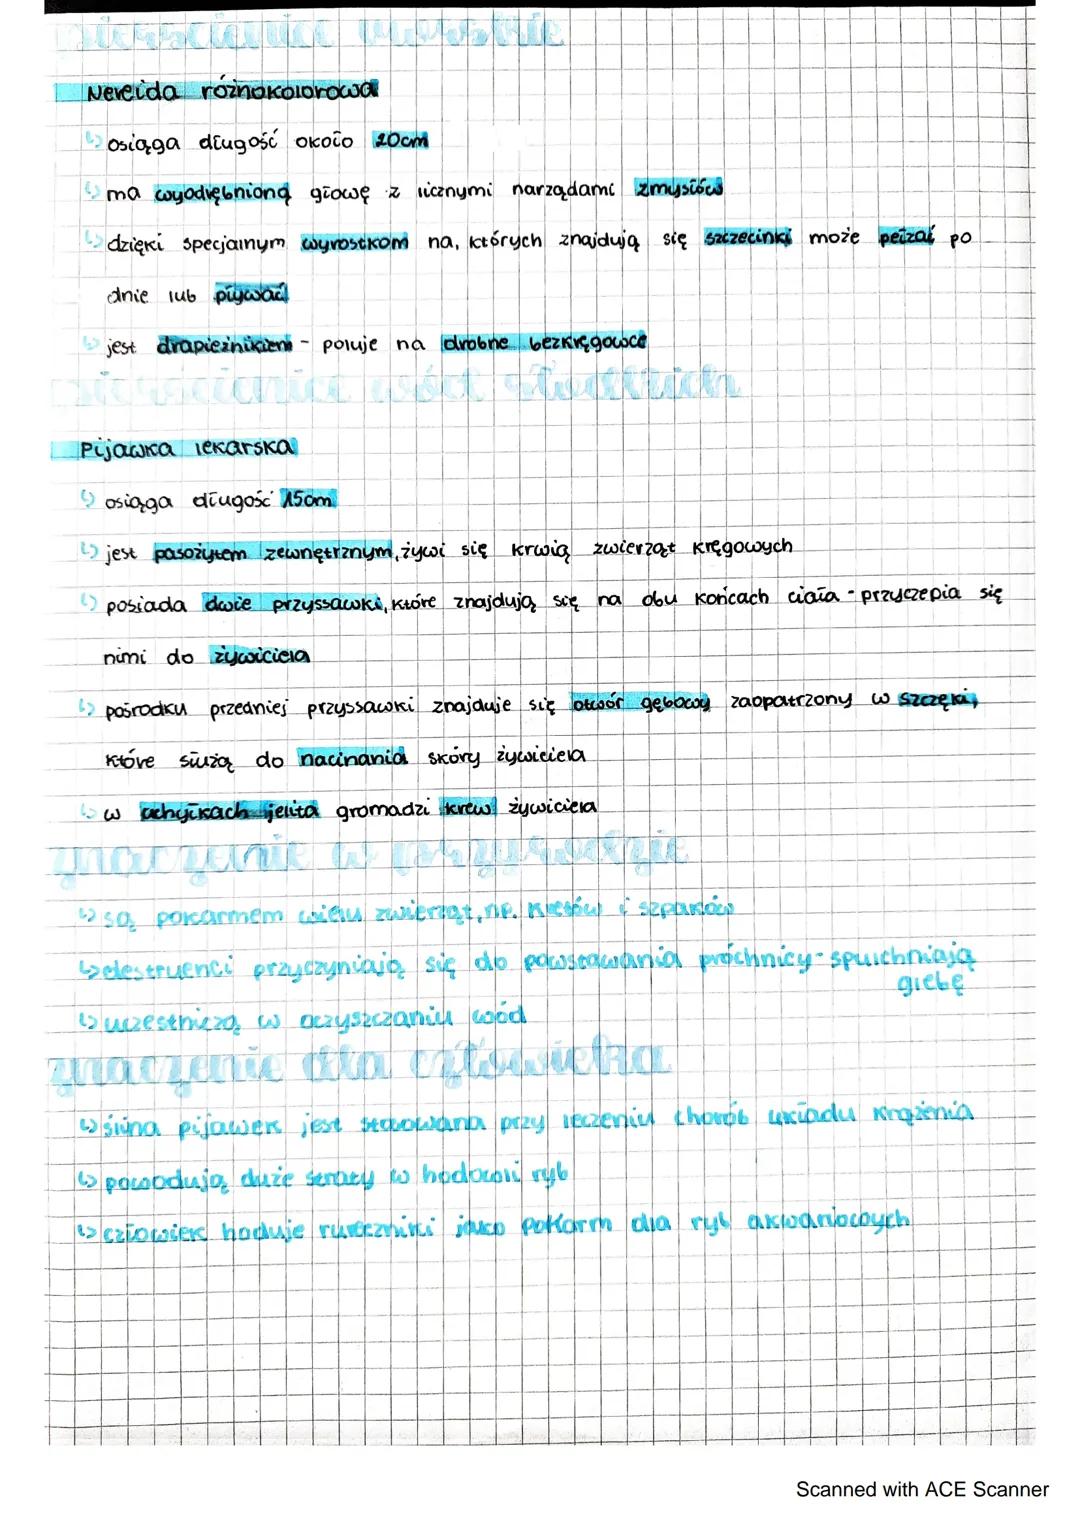 pierścienice morskie
Nereida różnokolorowa
↳ osiąga długość około 20cm
↳ ma wyodrębnioną głowę z licznymi narządami zmysłów
↳ dzięki specjalnym wyrostkom na, których znajdują się szczecinki może pełzać po
dnie lub pływać
↳ jest drapieżnikiem - poluje na drobne bezkręgowce
pierścienice wód słodkich
Pijawka lekarska
↳ osiąga długość 15cm
↳ jest pasożytem zewnętrznym, żywi się krwią zwierząt kręgowych
↳ posiada dwie przyssawki, które znajdują się na obu końcach ciała - przyczepia się
nimi do żywiciela
↳ pośrodku przedniej przyssawki znajduje się otwór gębowy zaopatrzony w szczęki,
które służą do nacinania skóry żywiciela
↳ w uchyłkach jelita gromadzi krew żywiciela
znaczenie w przyrodzie
↳ są pokarmem wielu zwierząt, np. kretów i szpaków
↳ destruenci przyczyniają się do powstawania próchnicy - spulchniają
glebę
↳ uczestniczą w oczyszczaniu wód
znaczenie dla człowieka
↳ ślina pijawek jest stosowana przy leczeniu chorób układu krążenia
↳ powodują duże straty w hodowli ryb
↳ człowiek hoduje rureczniki jako pokarm dla ryb akwariowych
Scanned with ACE Scanner